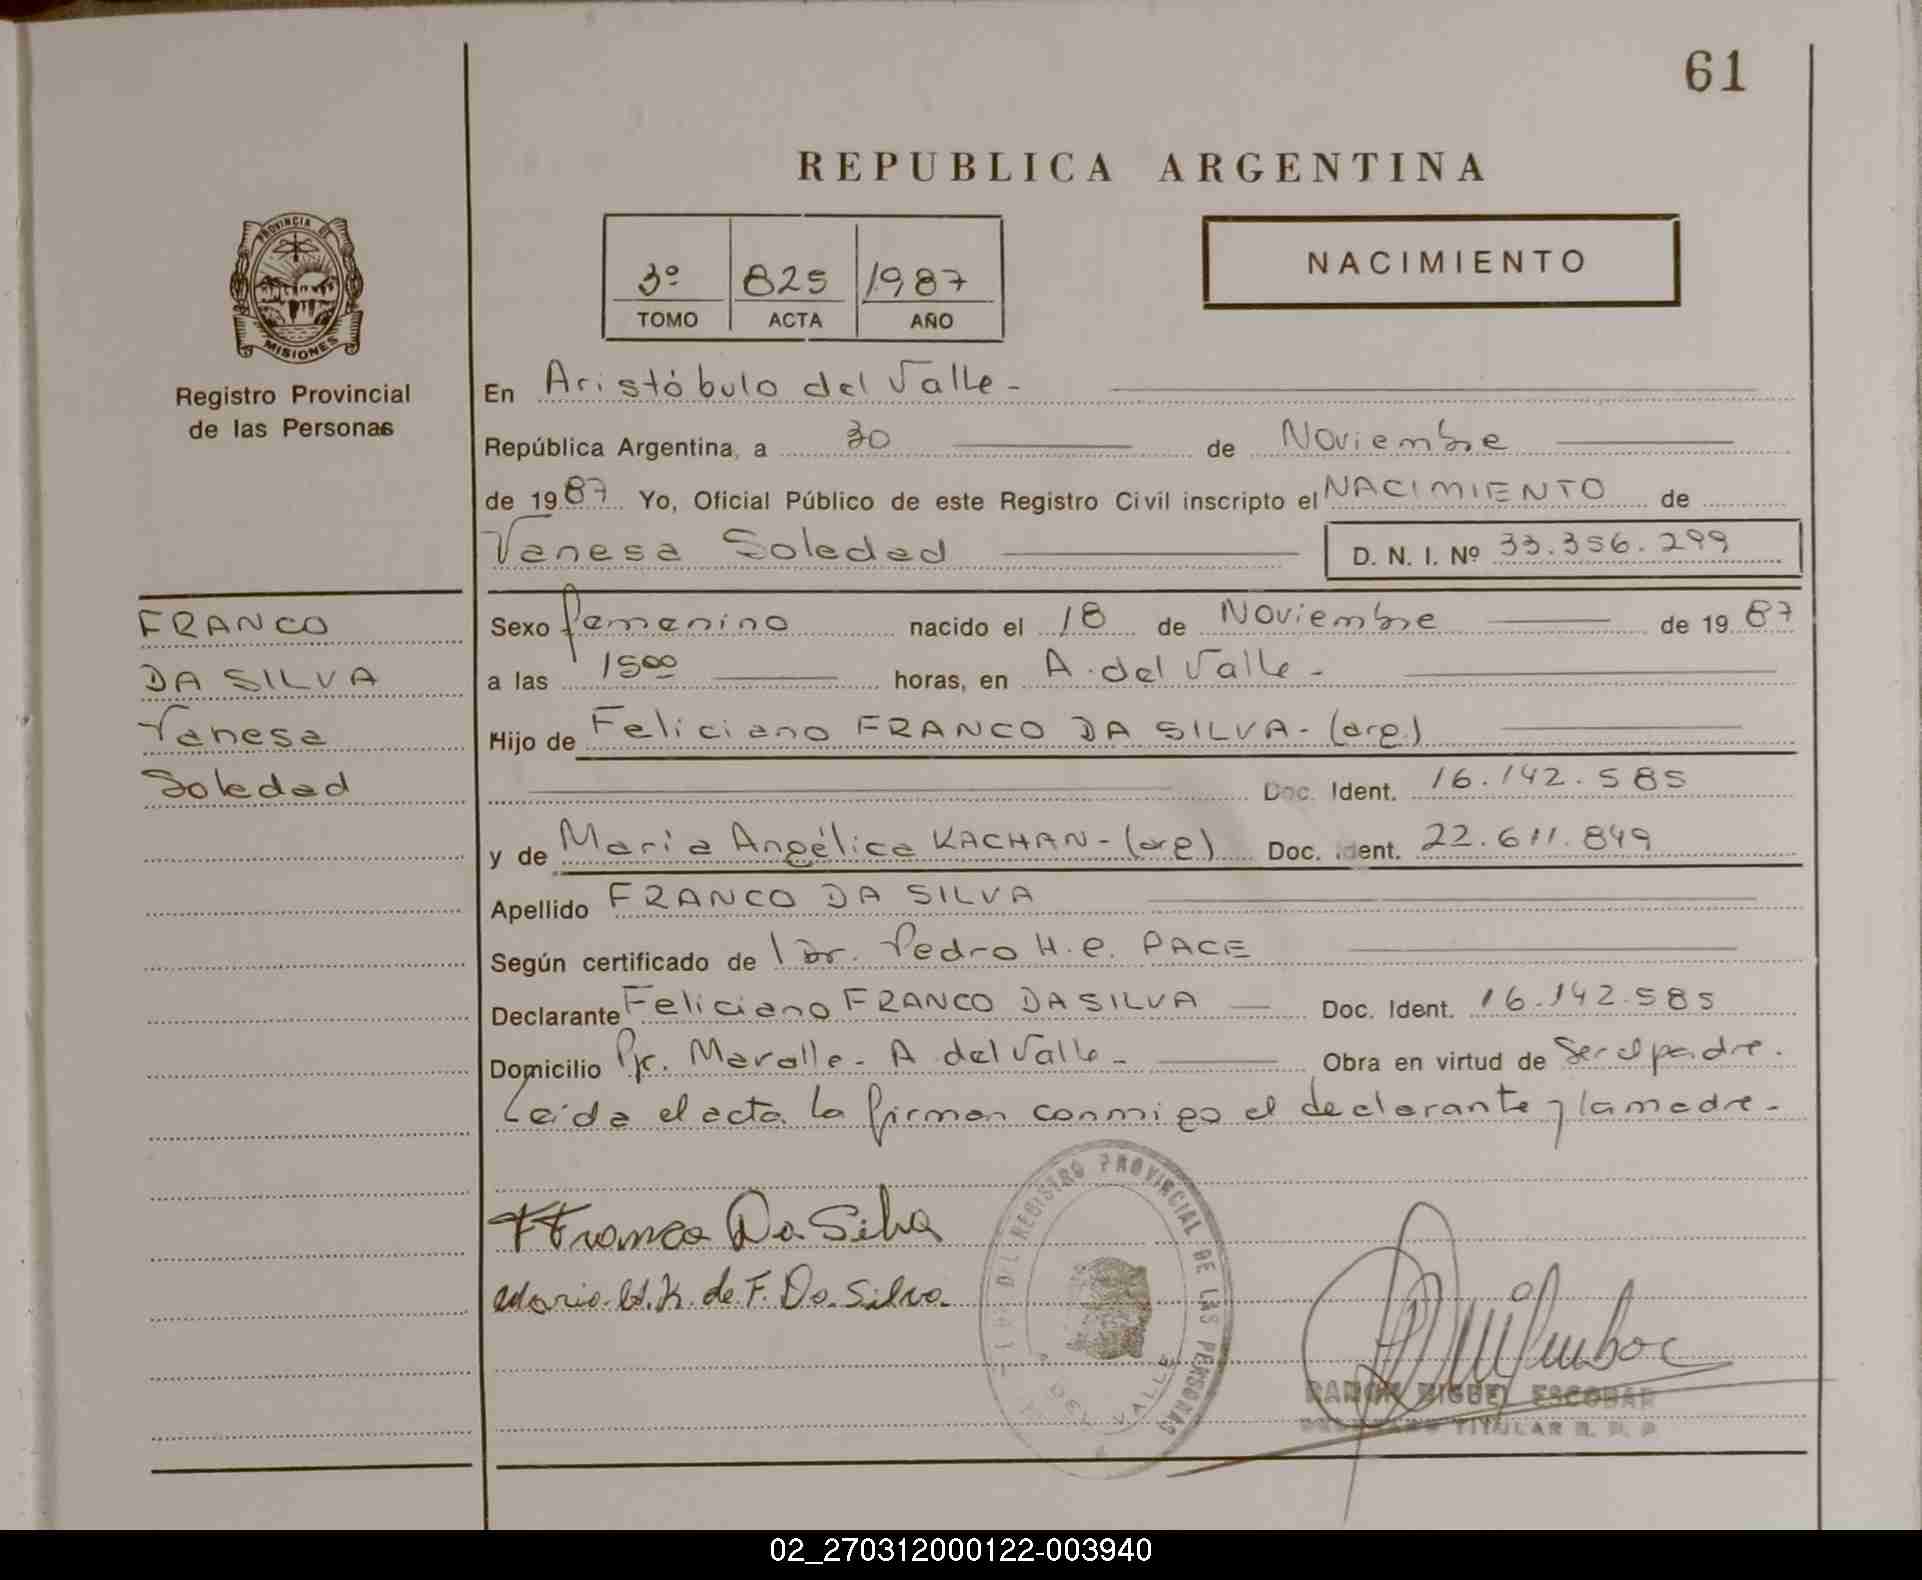 61
REPUBLICA ARGENTINA
PROVINCIA DE
MISIONES
Registro Provincial
de las Personas
3º 825 1987
TOMO ACTA AÑO
NACIMIENTO
En Aristóbulo del Valle -
República Argentina, a 30 de Noviembre
de 1987 Yo, Oficial Público de este Registro Civil inscripto el NACIMIENTO de
Vanesa Soledad D. N. I. Nº 33.356.299
FRANCO
DA SILVA
Vanesa
Soledad
Sexo femenino nacido el 18 de Noviembre de 1987
a las 15 00 horas, en A. del Valle -
Hijo de Feliciano FRANCO DA SILVA - (arg)
Doc. Ident. 16.142.585
y de María Angélica KACHAN - (arg) Doc. Ident. 22.611.849
Apellido FRANCO DA SILVA
Según certificado de l Dr. Pedro H. e. PACE
Declarante Feliciano FRANCO DA SILVA Doc. Ident. 16.142.585
Domicilio - A. del Valle - Obra en virtud de Ser el padre.
Leída el acta la firman conmigo el declarante y la madre -
Franco Da Silva
de F. Da Silva
DEL REGISTRO PROVINCIAL DE LAS PERSONAS
DEL VALLE
RAMON MIGUEL ESCOBAR
TITULAR R. P. P.
02_270312000122-003940